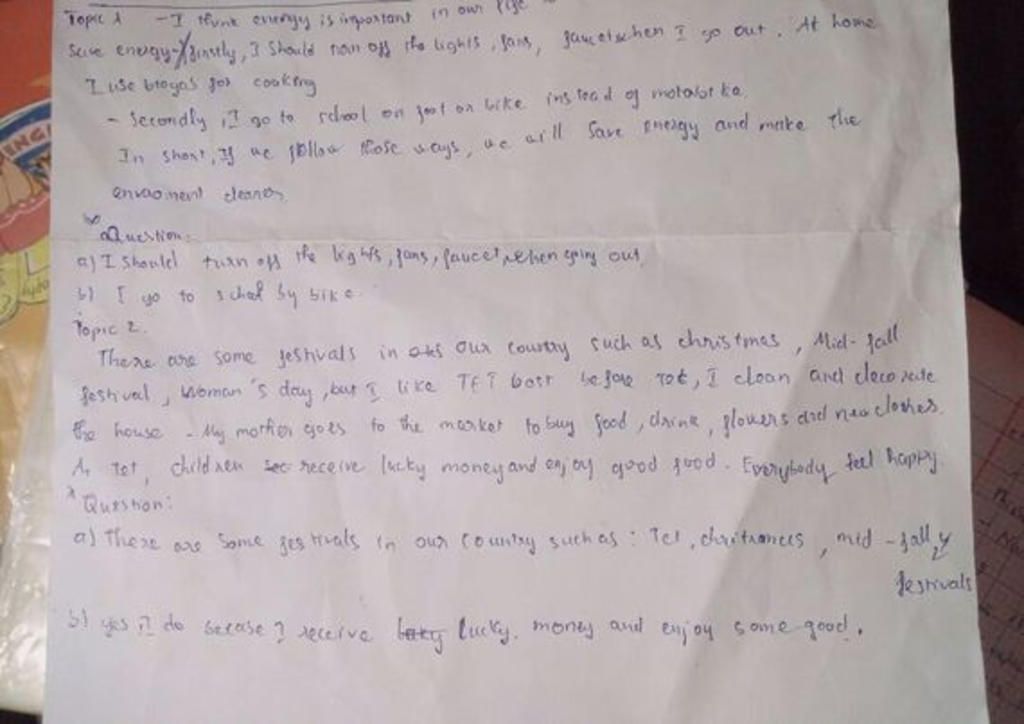 Topic 1 - I think energy is important in our life
Save energy - firstly, I should turn off the lights, fans, faucet when I go out. At home
I use biogas for cooking
- Secondly, I go to school on foot or bike instead of
In short, If we follow those ways, we will save energy and make the
enviroment cleaner
* Question:
a) I should turn off the lights, fans, faucet, when going out.
b) I go to school by bike.
Topic 2.
There are some festivals in our country such as christmas, Mid-fall
festival, woman's day, but I like TET best before Tet, I clean and decorate
the house - My mother goes to the market to buy food, drink, flowers and new clothes.
At Tet, children receive lucky money and enjoy good food. Everybody feel happy.
* Question:
a) There are some festivals in our country such as: Tet, , mid-fall
festivals
b) yes, I do becase I receive lucky money and enjoy some good.
ENGL